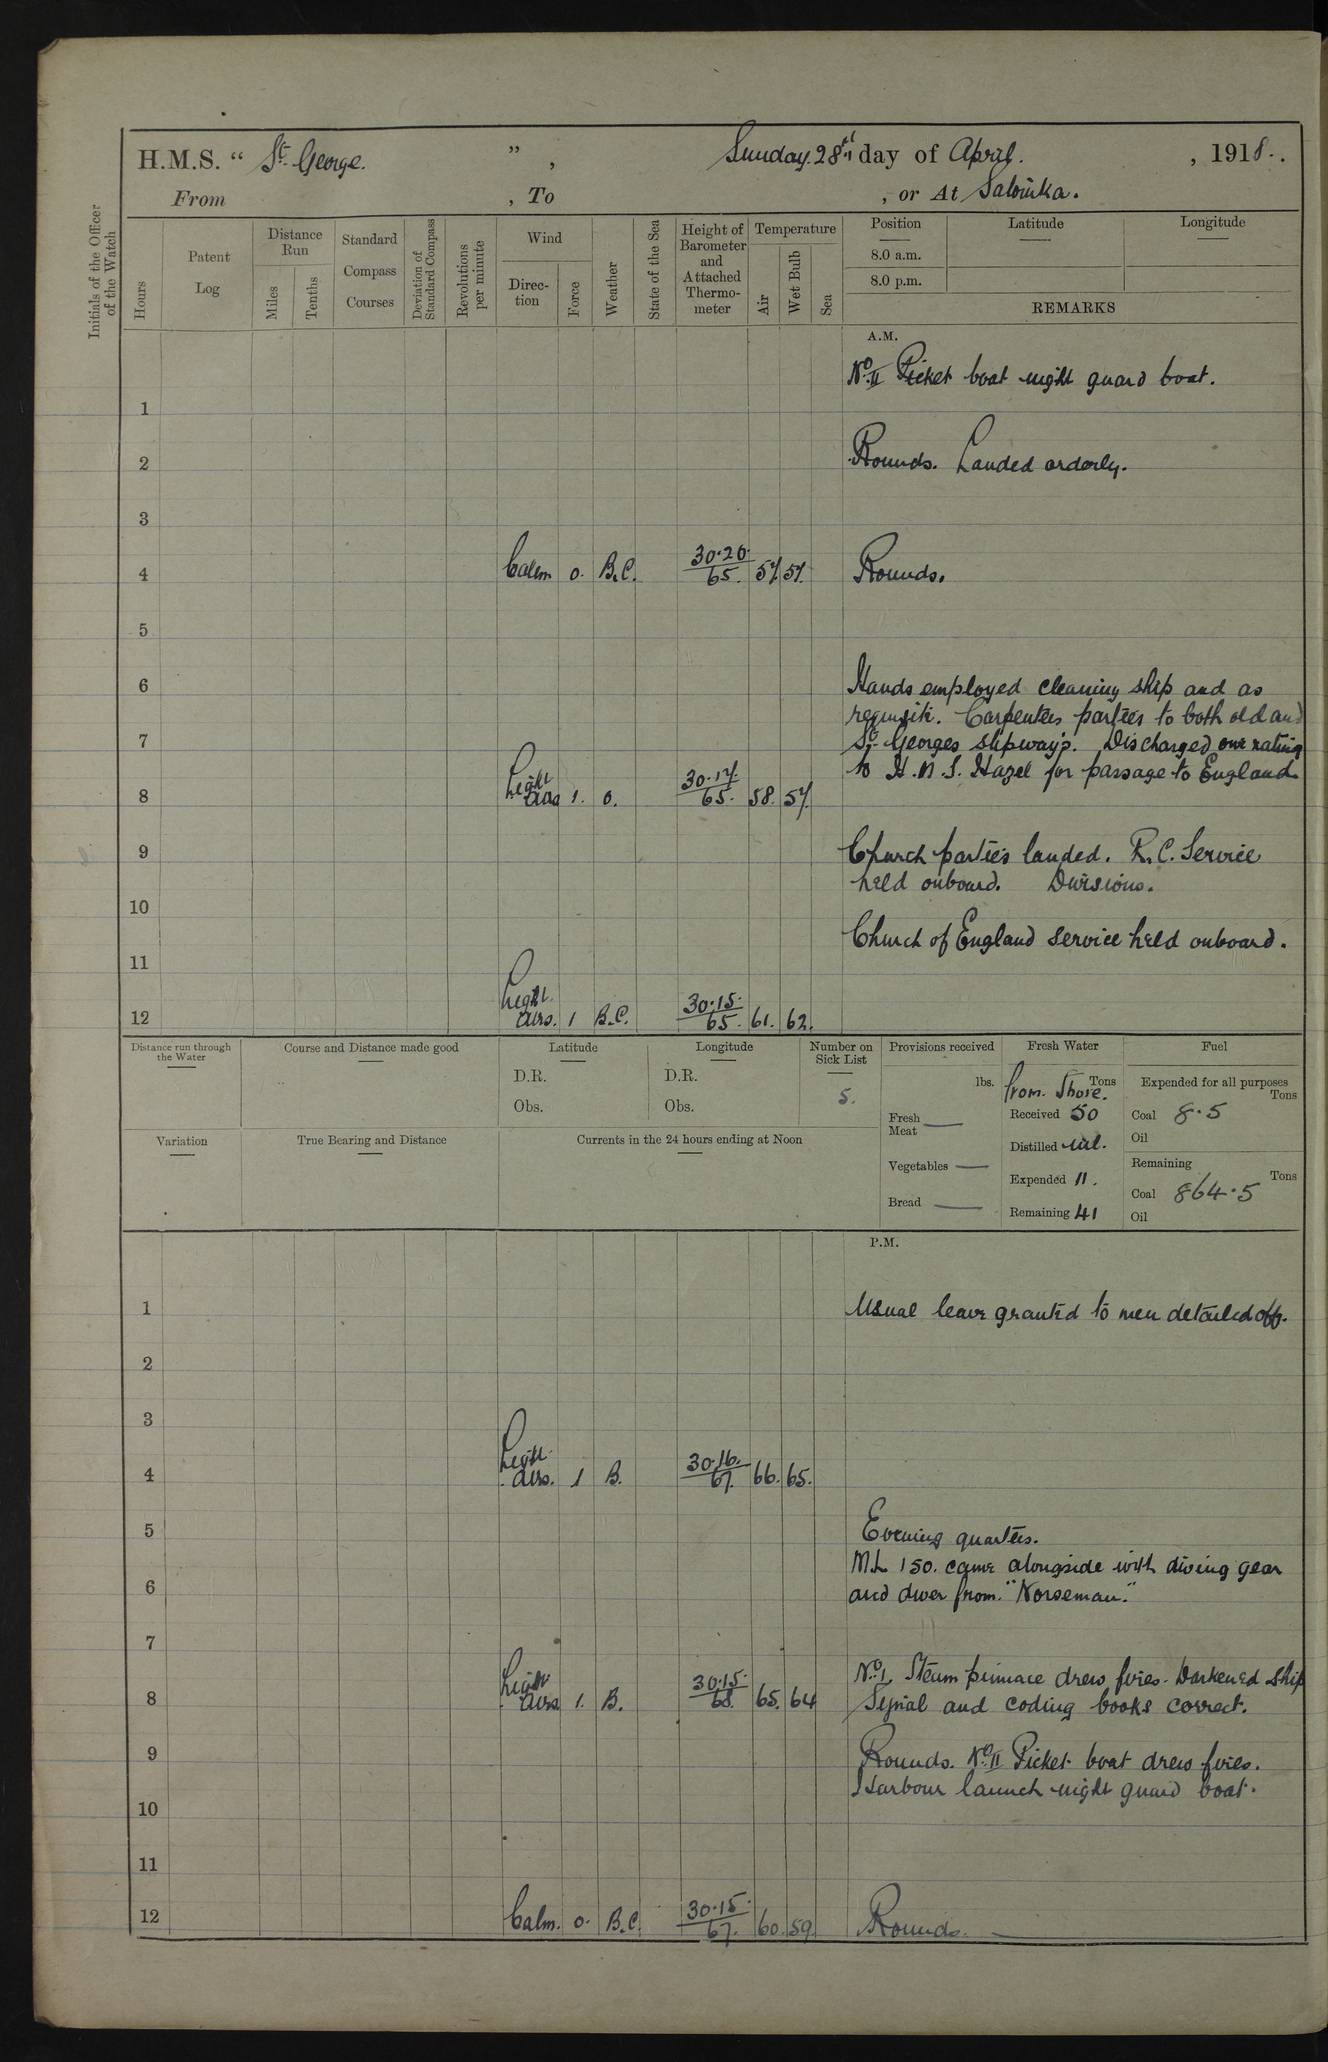 H.M.S. “ St George. ” , Sunday. 28th day of April. , 1918.
From , To , or At Salonika.
Initials of the Officer of the Watch
Hours
Patent Log
Distance Run
Miles
Tenths
Standard Compass Courses
Deviation of Standard Compass
Revolutions per minute
Wind
Direction
Force
Weather
State of the Sea
Height of Barometer and Attached Thermometer
Temperature
Air
Wet Bulb
Sea
Position
8.0 a.m.
8.0 p.m.
Latitude
Longitude
REMARKS
A.M.
No. II Picket boat night guard boat.
1
2 Rounds. Landed orderly.
3
4 Calm 0. B.C. 30.20. 65. 57. 57. Rounds.
5
6 Hands employed cleaning ship and as
requisite. Carpenters parties to both old and
7 St. Georges slipway's. Discharged one rating
to H.M.S. Hazel for passage to England.
8 Light airs 1. 0. 30.17. 65. 58. 57.
9 Church parties landed. R.C. Service
held onboard. Divisions.
10
Church of England service held onboard.
11
12 Light airs. 1 B.C. 30.15. 65. 61. 62.
Distance run through the Water
Course and Distance made good
Latitude
D.R.
Obs.
Longitude
D.R.
Obs.
Number on Sick List
5.
Provisions received
lbs.
Fresh Meat —
Vegetables —
Bread —
Fresh Water
Tons
from Shore.
Received 50
Distilled nil.
Expended 11.
Remaining 41
Fuel
Expended for all purposes
Tons
Coal 8.5
Oil
Remaining
Tons
Coal 864.5
Oil
Variation
True Bearing and Distance
Currents in the 24 hours ending at Noon
P.M.
1 Usual leave granted to men detailed off.
2
3
4 Light airs. 1 B. 30.16. 67. 66. 65.
5 Evening quarters.
M.L. 150. came alongside with diving gear
6 and diver from "Norseman."
7
No. 1. Steam pinnace drew fires. Darkened ship
8 Light airs 1. B. 30.15. 68. 65. 64 Signal and coding books correct.
9 Rounds. No. II Picket boat drew fires.
Harbour launch night guard boat.
10
11
12 Calm. 0. B.C. 30.15. 67. 60. 59. Rounds.